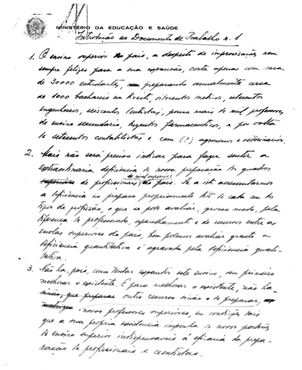 MINISTÉRIO DA EDUCAÇÃO E SAÚDE
Introdução ao Documento de Trabalho n. 1
1. O ensino superior do país, a despeito de improvisações nem
sempre felizes para a sua expansão, conta apenas com cerca
de 30000 estudantes, preparando anualmente cerca
de 1000 bachareis em direito, oitocentos médicos, setecentos
engenheiros, seiscentos dentistas, pouco mais de mil professores
de ensino secundário, farmacêuticos, e por volta
de setecentos contabilistas e cem (?) agronomos e veterinários.
2. Mais não será preciso indicar para fazer sentir a
extraordinaria deficiencia de nossa preparação dos quadros
de profissionais do país. Se a isto acrescentarmos
a deficiência no preparo profissional
tipo de profissão a que se possa avaliar, grosso modo, pela
diferença de professorado, aparelhamento e de recursos entre as
escolas superiores do país, bem podemos avaliar quanto a
deficiência quantitativa é agravada pela deficiência quali-
tativa.
3. Não há, pois, como tentar expandir este ensino, sem primeiro
melhorar o existente. E para melhorar o existente, não há
mais que preparar outro recurso senão o de preparar,
novos professores superiores, em condições tais
que a sua propria existencia imponha os novos padrões
de ensino superior indispensaveis à eficacia da prepa-
ração de profissionais e cientistas.